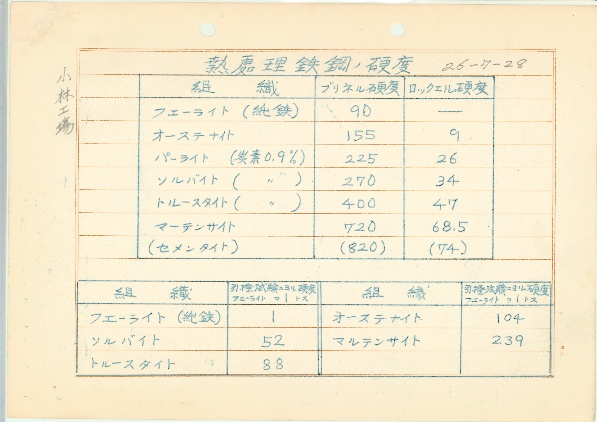 熱處理鉄鋼ノ硬度 26-7-28
小林工場
組織 ブリネル硬度 ロックエル硬度
フエーライト (純鉄) 90 —
オーステナイト 155 9
パーライト (炭素0.9%) 225 26
ソルバイト ( 〃 ) 270 34
トルースタイト ( 〃 ) 400 47
マーテンサイト 720 68.5
(セメンタイト) (820) (74)
組織 引掻試験ニヨル硬度 フエーライトヲ1トス 組織 引掻試験ニヨル硬度 フエーライトヲ1トス
フエーライト (純鉄) 1 オーステナイト 104
ソルバイト 52 マルテンサイト 239
トルースタイト 88